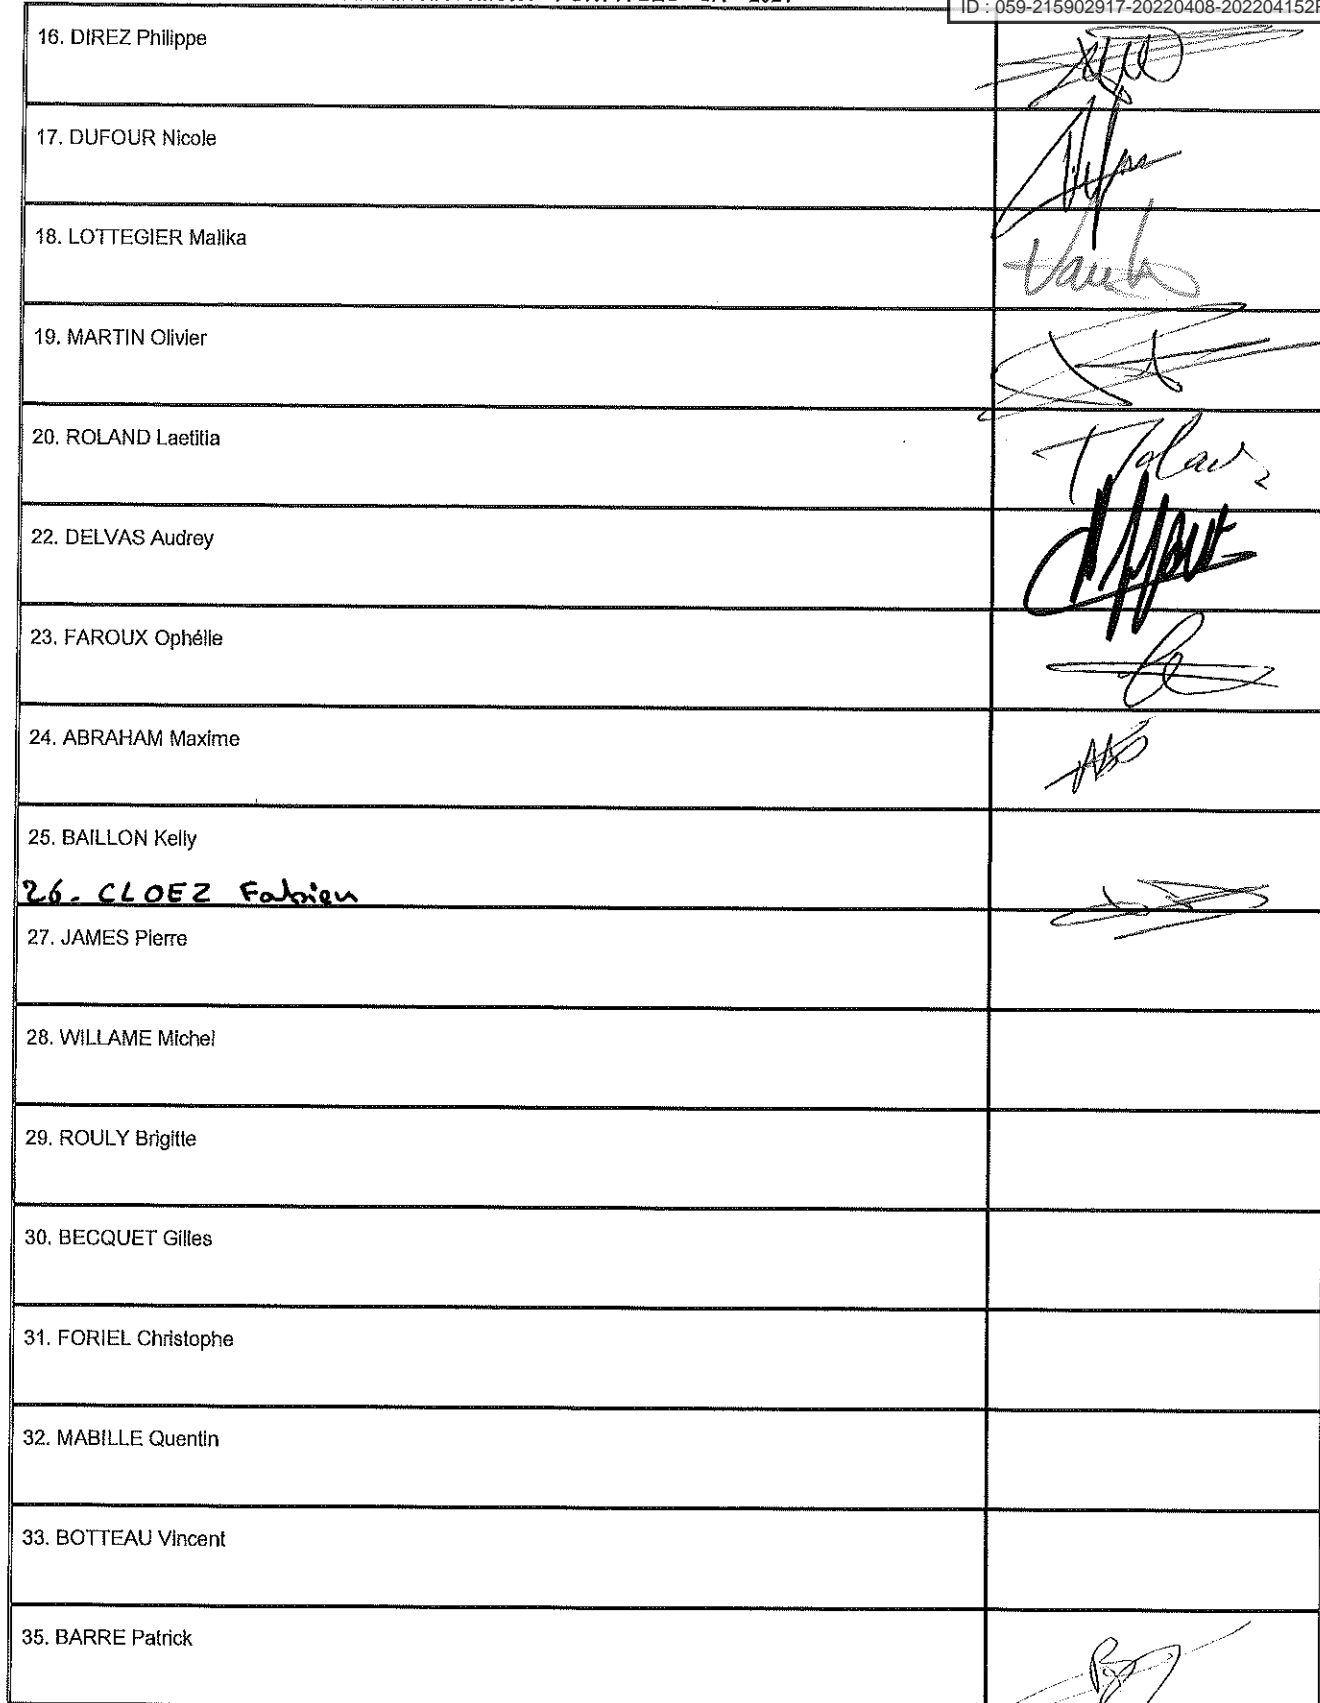 ID : 059-215902917-20220408-202204152
16. DIREZ Philippe
17. DUFOUR Nicole
18. LOTTEGIER Malika
19. MARTIN Olivier
20. ROLAND Laetitia
22. DELVAS Audrey
23. FAROUX Ophélie
24. ABRAHAM Maxime
25. BAILLON Kelly
26. CLOEZ Fabien
27. JAMES Pierre
28. WILLAME Michel
29. ROULY Brigitte
30. BECQUET Gilles
31. FORIEL Christophe
32. MABILLE Quentin
33. BOTTEAU Vincent
35. BARRE Patrick